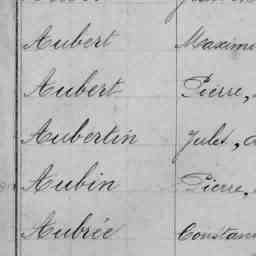 Aubert Maximi
Aubert Pierre,
Aubertin Jules, A
Aubin Pierre,
Aubrée Constan